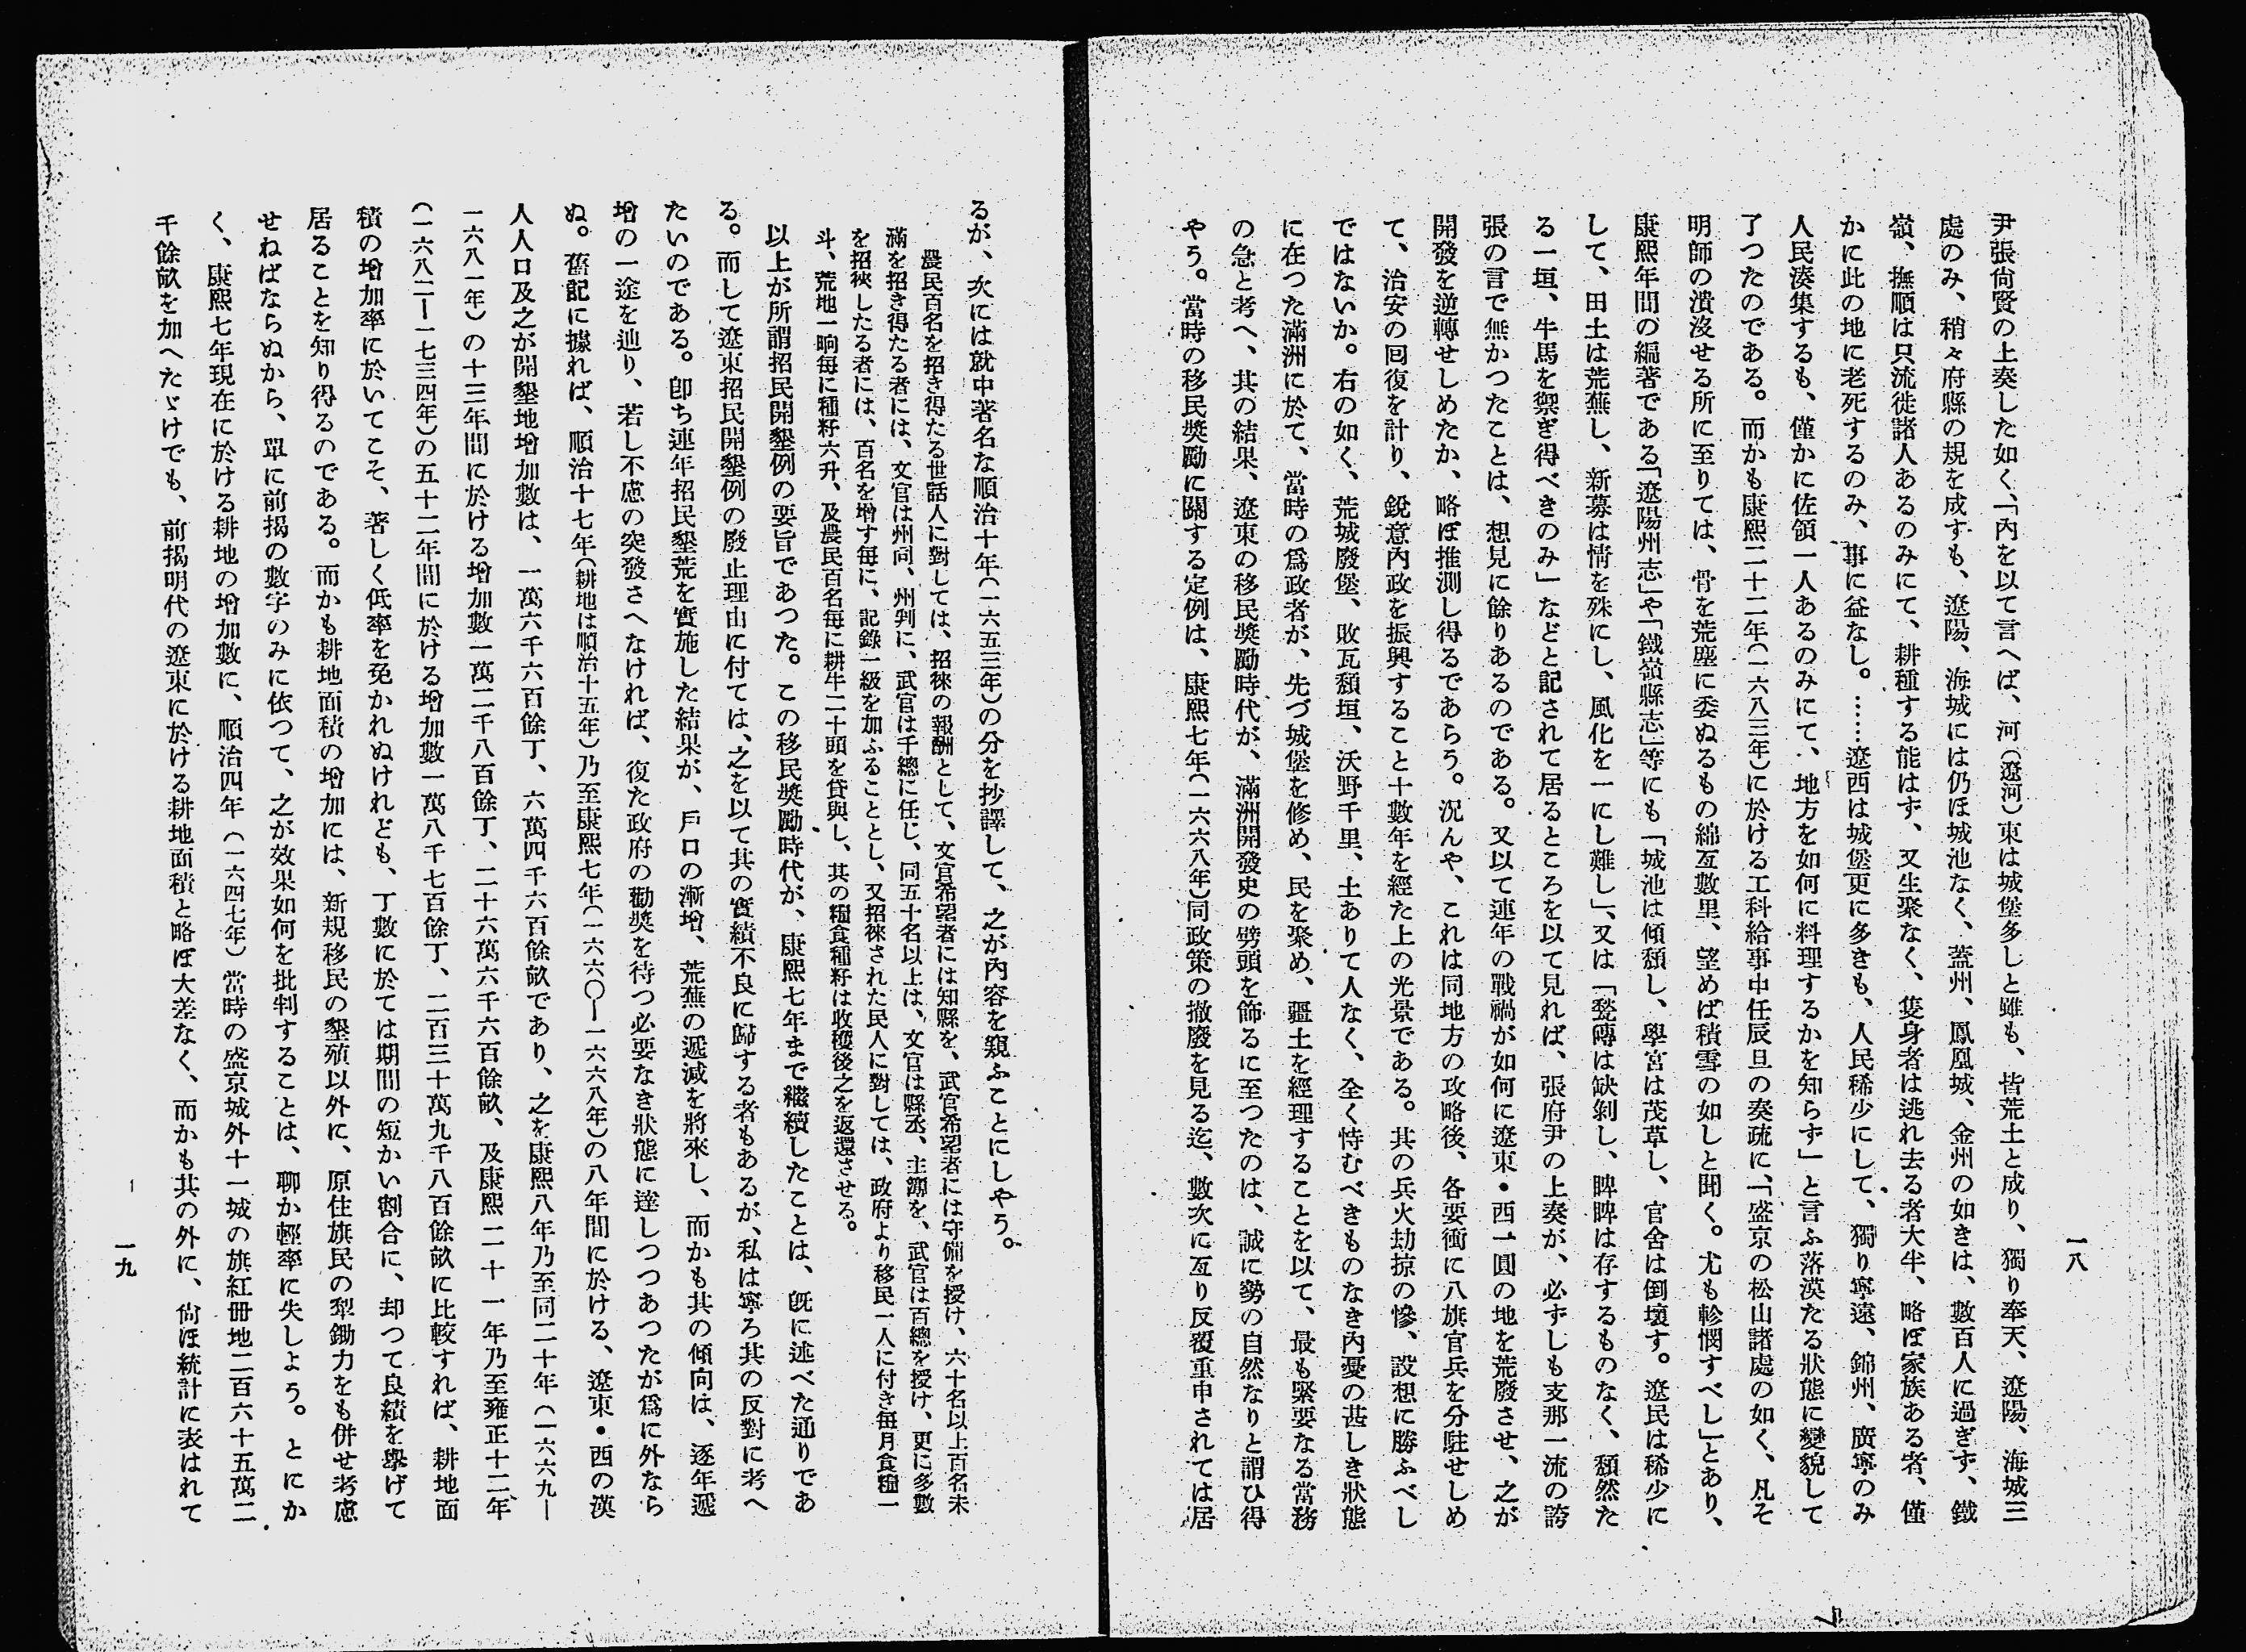 一八
尹張尙賢の上奏した如く、「內を以て言へば、河（遼河）東は城堡多しと雖も、皆荒土と成り、獨り奉天、遼陽、海城三
處のみ、稍々府縣の規を成すも、遼陽、海城には仍ほ城池なく、蓋州、鳳凰城、金州の如きは、數百人に過ぎず、鐵
嶺、撫順は只流徙諸人あるのみにて、耕種する能はず、又生聚なく、隻身者は逃れ去る者大半、略ぼ家族ある者、僅
かに此の地に老死するのみ、事に益なし。……遼西は城堡更に多きも、人民稀少にして、獨り寧遠、錦州、廣寧のみ
人民湊集するも、僅かに佐領一人あるのみにて、地方を如何に料理するかを知らず」と言ふ落漠たる狀態に變貌して
了つたのである。而かも康熙二十二年（一六八三年）に於ける工科給事中任辰旦の奏疏に、「盛京の松山諸處の如く、凡そ
明師の潰沒せる所に至りては、骨を荒塵に委ぬるもの綿亙數里、望めば積雪の如しと聞く。尤も軫憫すべし」とあり、
康熙年間の編著である「遼陽州志」や「鐵嶺縣志」等にも「城池は傾頽し、學宮は茂草し、官舍は倒壞す。遼民は稀少に
して、田土は荒蕪し、新募は情を殊にし、風化を一にし難し」、又は「甃磚は缺剝し、睥睨は存するものなく、頽然た
る一垣、牛馬を禦ぎ得べきのみ」などと記されて居るところを以て見れば、張府尹の上奏が、必ずしも支那一流の誇
張の言で無かつたことは、想見に餘りあるのである。又以て連年の戰禍が如何に遼東・西一圓の地を荒廢させ、之が
開發を逆轉せしめたか、略ぼ推測し得るであらう。況んや、これは同地方の攻略後、各要衝に八旗官兵を分駐せしめ
て、治安の回復を計り、銳意內政を振興すること十數年を經た上の光景である。其の兵火劫掠の慘、設想に勝ふべし
ではないか。右の如く、荒城廢堡、敗瓦頽垣、沃野千里、土ありて人なく、全く恃むべきものなき內憂の甚しき狀態
に在つた滿洲に於て、當時の爲政者が、先づ城堡を修め、民を聚め、疆土を經理することを以て、最も緊要なる當務
の急と考へ、其の結果、遼東の移民獎勵時代が、滿洲開發史の劈頭を飾るに至つたのは、誠に勢の自然なりと謂ひ得
やう。當時の移民獎勵に關する定例は、康熙七年（一六六八年）同政策の撤廢を見る迄、數次に亙り反覆重申されては居
るが、次には就中著名な順治十年（一六五三年）の分を抄譯して、之が內容を窺ふことにしやう。
農民百名を招き得たる世話人に對しては、招徠の報酬として、文官希望者には知縣を、武官希望者には守備を授け、六十名以上百名未
滿を招き得たる者には、文官は州同、州判に、武官は千總に任じ、同五十名以上は、文官は縣丞、主簿を、武官は百總を授け、更に多數
を招徠したる者には、百名を增す每に、記錄一級を加ふることとし、又招徠された民人に對しては、政府より移民一人に付き每月食糧一
斗、荒地一晌每に種籽六升、及農民百名每に耕牛二十頭を貸與し、其の糧食種籽は收穫後之を返還させる。
以上が所謂招民開墾例の要旨であつた。この移民獎勵時代が、康熙七年まで繼續したことは、旣に述べた通りであ
る。而して遼東招民開墾例の廢止理由に付ては、之を以て其の實績不良に歸する者もあるが、私は寧ろ其の反對に考へ
たいのである。卽ち連年招民墾荒を實施した結果が、戶口の漸增、荒蕪の遞減を將來し、而かも其の傾向は、逐年遞
增の一途を辿り、若し不慮の突發さへなければ、復た政府の勸獎を待つ必要なき狀態に達しつつあつたが爲に外なら
ぬ。舊記に據れば、順治十七年（耕地は順治十五年）乃至康熙七年（一六六〇ー一六六八年）の八年間に於ける、遼東・西の漢
人人口及之が開墾地增加數は、一萬六千六百餘丁、六萬四千六百餘畝であり、之を康熙八年乃至同二十年（一六六九ー
一六八一年）の十三年間に於ける增加數一萬二千八百餘丁、二十六萬六千六百餘畝、及康熙二十一年乃至雍正十二年
（一六八二ー一七三四年）の五十二年間に於ける增加數一萬八千七百餘丁、二百三十萬九千八百餘畝に比較すれば、耕地面
積の增加率に於いてこそ、著しく低率を免かれぬけれども、丁數に於ては期間の短かい割合に、却つて良績を擧げて
居ることを知り得るのである。而かも耕地面積の增加には、新規移民の墾殖以外に、原住旗民の犁鋤力をも併せ考慮
せねばならぬから、單に前揭の數字のみに依つて、之が效果如何を批判することは、聊か輕率に失しよう。とにか
く、康熙七年現在に於ける耕地の增加數に、順治四年（一六四七年）當時の盛京城外十一城の旗紅冊地二百六十五萬二
千餘畝を加へたゞけでも、前揭明代の遼東に於ける耕地面積と略ぼ大差なく、而かも其の外に、尙ほ統計に表はれて
一九